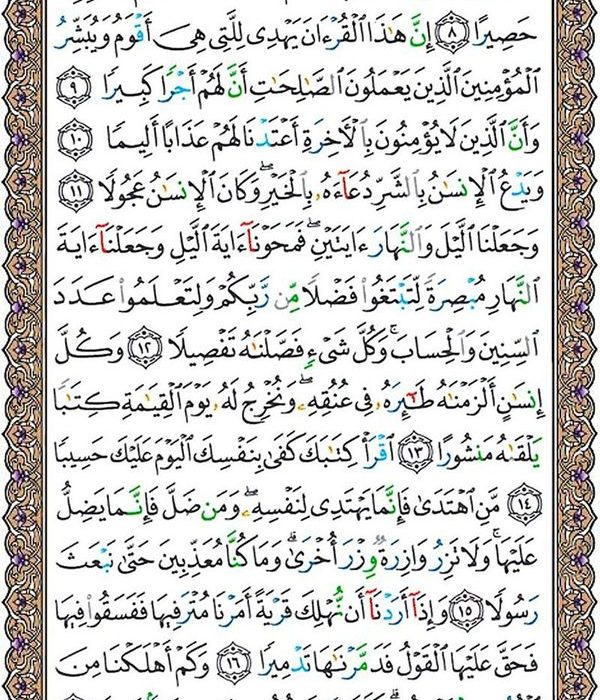 حَصِيرًا ٨ إِنَّ هَٰذَا ٱلْقُرْءَانَ يَهْدِى لِلَّتِى هِىَ أَقْوَمُ وَيُبَشِّرُ
ٱلْمُؤْمِنِينَ ٱلَّذِينَ يَعْمَلُونَ ٱلصَّٰلِحَٰتِ أَنَّ لَهُمْ أَجْرًا كَبِيرًا ٩
وَأَنَّ ٱلَّذِينَ لَا يُؤْمِنُونَ بِٱلْءَاخِرَةِ أَعْتَدْنَا لَهُمْ عَذَابًا أَلِيمًا ١٠
وَيَدْعُ ٱلْإِنسَٰنُ بِٱلشَّرِّ دُعَآءَهُۥ بِٱلْخَيْرِ ۖ وَكَانَ ٱلْإِنسَٰنُ عَجُولًا ١١
وَجَعَلْنَا ٱلَّيْلَ وَٱلنَّهَارَ ءَايَتَيْنِ ۖ فَمَحَوْنَآ ءَايَةَ ٱلَّيْلِ وَجَعَلْنَآ ءَايَةَ
ٱلنَّهَارِ مُبْصِرَةً لِّتَبْتَغُوا۟ فَضْلًا مِّن رَّبِّكُمْ وَلِتَعْلَمُوا۟ عَدَدَ
ٱلسِّنِينَ وَٱلْحِسَابَ ۚ وَكُلَّ شَىْءٍ فَصَّلْنَٰهُ تَفْصِيلًا ١٢ وَكُلَّ
إِنسَٰنٍ أَلْزَمْنَٰهُ طَٰٓئِرَهُۥ فِى عُنُقِهِۦ ۖ وَنُخْرِجُ لَهُۥ يَوْمَ ٱلْقِيَٰمَةِ كِتَٰبًا
يَلْقَىٰهُ مَنشُورًا ١٣ ٱقْرَأْ كِتَٰبَكَ كَفَىٰ بِنَفْسِكَ ٱلْيَوْمَ عَلَيْكَ حَسِيبًا
١٤ مَّنِ ٱهْتَدَىٰ فَإِنَّمَا يَهْتَدِى لِنَفْسِهِۦ ۖ وَمَن ضَلَّ فَإِنَّمَا يَضِلُّ
عَلَيْهَا ۚ وَلَا تَزِرُ وَازِرَةٌ وِزْرَ أُخْرَىٰ ۗ وَمَا كُنَّا مُعَذِّبِينَ حَتَّىٰ نَبْعَثَ
رَسُولًا ١٥ وَإِذَآ أَرَدْنَآ أَن نُّهْلِكَ قَرْيَةً أَمَرْنَا مُتْرَفِيهَا فَفَسَقُوا۟ فِيهَا
فَحَقَّ عَلَيْهَا ٱلْقَوْلُ فَدَمَّرْنَٰهَا تَدْمِيرًا ١٦ وَكَمْ أَهْلَكْنَا مِنَ